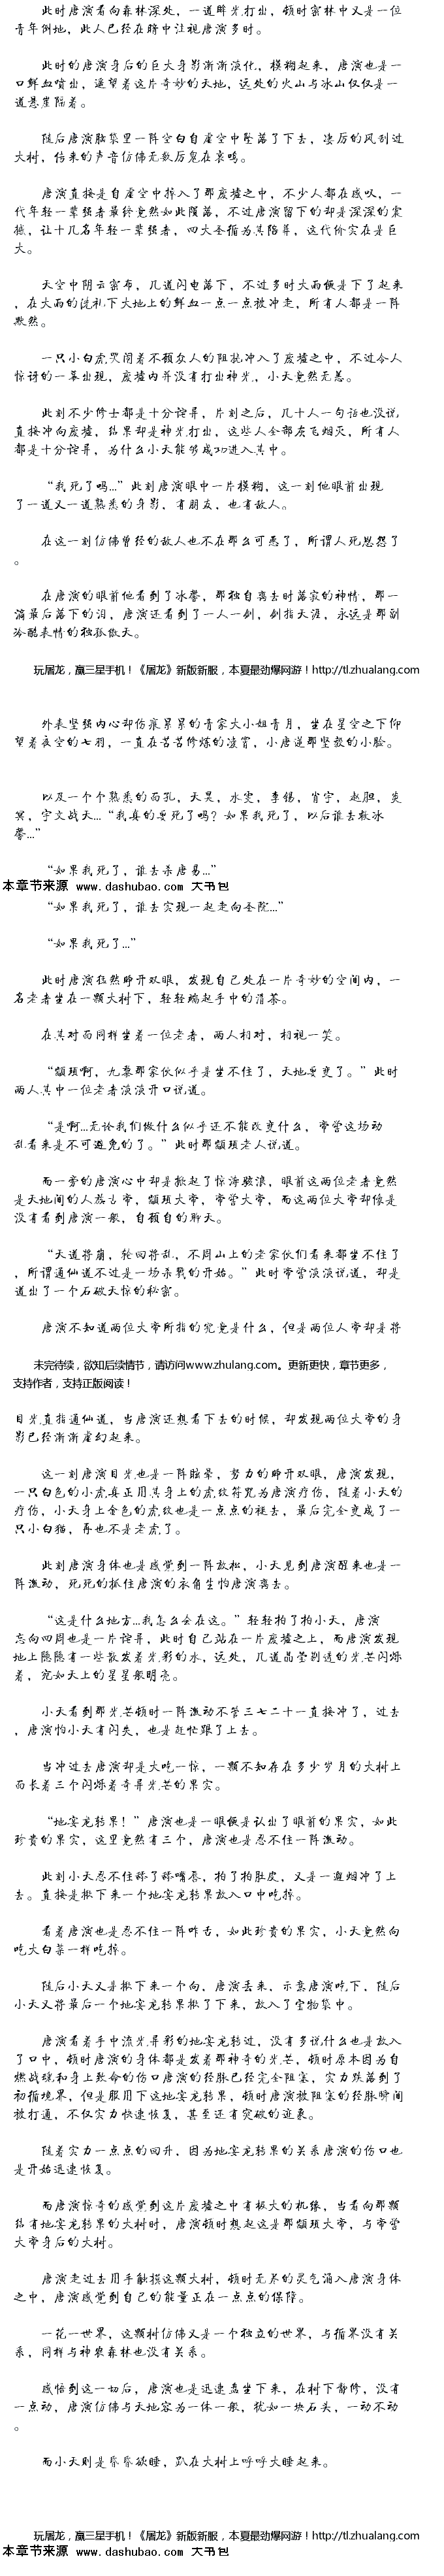 此时唐演看向森林深处，一道眸光打出，顿时密林中又是一位
青年倒地，此人已经在暗中注视唐演多时。
此时的唐演身后的巨大身影渐渐淡化，模糊起来，唐演也是一
口鲜血喷出，遥望着这片奇妙的天地，远处的火山与冰山仅仅是一
道悬崖隔着。
随后唐演脑袋里一阵空白自虚空中坠落了下去，凄厉的风刮过
大树，传来的声音仿佛无数厉鬼在哀鸣。
唐演直接是自虚空中掉入了那废墟之中，不少人都在感叹，一
代年轻一辈强者最终竟然如此陨落，不过唐演留下的却是深深的震
撼，让十几名年轻一辈强者，四大圣循为其陪葬，这代价实在是巨
大。
天空中阴云密布，几道闪电落下，不过多时大雨便是下了起来
，在大雨的洗礼下大地上的鲜血一点一点被冲走，所有人都是一阵
默然。
一只小白虎哭闹着不顾众人的阻拦冲入了废墟之中，不过令人
惊讶的一幕出现，废墟内并没有打出神光，小天竟然无恙。
此刻不少修士都是十分诧异，片刻之后，几十人一句话也没说，
直接冲向废墟，结果却是神光打出，这些人全部灰飞烟灭，所有人
都是十分诧异，为什么小天能够成功进入其中。
“我死了吗…”此刻唐演眼中一片模糊，这一刻他眼前出现
了一道又一道熟悉的身影，有朋友，也有敌人。
在这一刻仿佛曾经的敌人也不在那么可恶了，所谓人死恩怨了
。
在唐演的眼前他看到了冰馨，那独自离去时落寂的神情，那一
滴最后落下的泪，唐演还看到了一人一剑，剑指天涯，永远是那副
冷酷表情的独孤傲天。
玩屠龙，赢三星手机！《屠龙》新版新服，本夏最劲爆网游！http://tl.zhualang.com
外表坚强内心却伤痕累累的青家大小姐青月，坐在星空之下仰
望着夜空的七羽，一直在苦苦修炼的凌霄，小唐逆那坚毅的小脸。
以及一个个熟悉的面孔，天昊，水雯，李锡，肖宇，赵胆，炎
冥，宇文战天…“我真的要死了吗？如果我死了，以后谁去救冰
馨…”
“如果我死了，谁去杀唐易…”
本章节来源 www.dashubao.com 大书包
“如果我死了，谁去实现一起走向圣院…”
“如果我死了…”
此时唐演猛然睁开双眼，发现自己处在一片奇妙的空间内，一
名老者坐在一颗大树下，轻轻端起手中的清茶。
在其对面同样坐着一位老者，两人相对，相视一笑。
“颛顼啊，九幕那家伙似乎是坐不住了，天地要变了。”此时
两人其中一位老者淡淡开口说道。
“是啊…无论我们做什么似乎还不能改变什么，帝喾这场动
乱看来是不可避免的了。”此时那颛顼老人说道。
而一旁的唐演心中却是掀起了惊涛骇浪，眼前这两位老者竟然
是天地间的人族古帝，颛顼大帝，帝喾大帝，而这两位大帝却像是
没有看到唐演一般，自顾自的聊天。
“天道将崩，轮回将乱，不周山上的老家伙们看来都坐不住了
，所谓通仙道不过是一场杀戮的开始。”此时帝喾淡淡说道，却是
道出了一个石破天惊的秘密。
唐演不知道两位大帝所指的究竟是什么，但是两位人帝却是将
未完待续，欲知后续情节，请访问www.zhulang.com。更新更快，章节更多，
支持作者，支持正版阅读！
目光直指通仙道，当唐演还想看下去的时候，却发现两位大帝的身
影已经渐渐虚幻起来。
这一刻唐演目光也是一阵眩晕，努力的睁开双眼，唐演发现，
一只白色的小虎真正用其身上的虎纹符咒为唐演疗伤，随着小天的
疗伤，小天身上金色的虎纹也是一点点的褪去，最后完全变成了一
只小白猫，再也不是老虎了。
此刻唐演身体也是感觉到一阵放松，小天见到唐演醒来也是一
阵激动，死死的抓住唐演的衣角生怕唐演离去。
“这是什么地方…我怎么会在这。”轻轻拍了拍小天，唐演
忘向四周也是一片诧异，此时自己站在一片废墟之上，而唐演发现
地上隐隐有一些散发着光彩的水，远处，几道晶莹剔透的光芒闪烁
着，宛如天上的星星般明亮。
小天看到那光芒顿时一阵激动不管三七二十一直接冲了，过去
，唐演怕小天有闪失，也是赶忙跟了上去。
当冲过去唐演却是大吃一惊，一颗不知存在多少岁月的大树上
而长着三个闪烁着奇异光芒的果实。
“地宝龙转果！”唐演也是一眼便是认出了眼前的果实，如此
珍贵的果实，这里竟然有三个，唐演也是忍不住一阵激动。
此刻小天忍不住舔了舔嘴唇，拍了拍肚皮，又是一遛烟冲了上
去。直接是揪下来一个地宝龙转果放入口中吃掉。
看着唐演也是忍不住一阵咋舌，如此珍贵的果实，小天竟然向
吃大白菜一样吃掉。
随后小天又是揪下来一个向，唐演丢来，示意唐演吃下，随后
小天又将最后一个地宝龙转果揪了下来，放入了宝物集中。
唐演看着手中流光异彩的地宝龙转过，没有多说什么也是放入
了口中，顿时唐演的身体都是发着那神奇的光芒，顿时原本因为自
燃战魂和身上致命的伤口唐演的经脉已经完全阻塞，实力跌落到了
初循境界，但是服用下这地宝龙转果，顿时唐演被阻塞的经脉瞬间
被打通，不仅实力快速恢复，甚至还有突破的迹象。
随着实力一点点的回升，因为地宝龙转果的关系唐演的伤口也
是开始迅速恢复。
而唐演惊奇的感觉到这片废墟之中有极大的机缘，当看向那颗
结有地宝龙转果的大树时，唐演顿时想起这是那颛顼大帝，与帝喾
大帝身后的大树。
唐演走过去用手触摸这颗大树，顿时无尽的灵气涌入唐演身体
之中，唐演感觉到自己的能量正在一点点的保障。
一花一世界，这颗树仿佛又是一个独立的世界，与循界没有关
系，同样与神农森林也没有关系。
感悟到这一切后，唐演也是迅速盘坐下来，在树下静修，没有
一点动，唐演仿佛与天地容为一体一般，犹如一块石头，一动不动
。
而小天则是昏昏欲睡，趴在大树上呼呼大睡起来。
玩屠龙，赢三星手机！《屠龙》新版新服，本夏最劲爆网游！http://tl.zhualang.com
本章节来源 www.dashubao.com 大书包